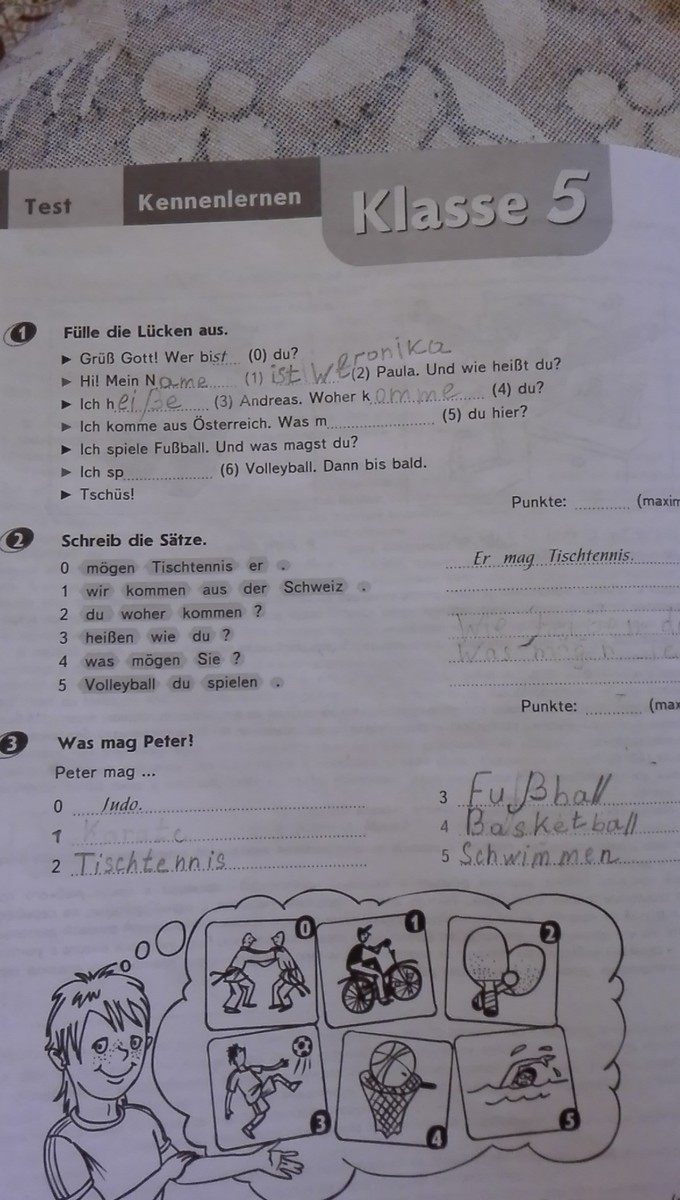 Test Kennenlernen Klasse 5
1 Fülle die Lücken aus.
► Grüß Gott! Wer bist (0) du?
► Hi! Mein Name (1) ist Weronika (2) Paula. Und wie heißt du?
► Ich heiße (3) Andreas. Woher komme (4) du?
► Ich komme aus Österreich. Was m (5) du hier?
► Ich spiele Fußball. Und was magst du?
► Ich sp (6) Volleyball. Dann bis bald.
► Tschüs!
Punkte: (maxim
2 Schreib die Sätze.
0 mögen Tischtennis er . Er mag Tischtennis.
1 wir kommen aus der Schweiz .
2 du woher kommen ?
3 heißen wie du ? Wie
4 was mögen Sie ? Was
5 Volleyball du spielen .
Punkte: (max
3 Was mag Peter?
Peter mag ...
0 Judo. 3 Fußball
1 Karate 4 Basketball
2 Tischtennis 5 Schwimmen
0 1 2
3 4 5